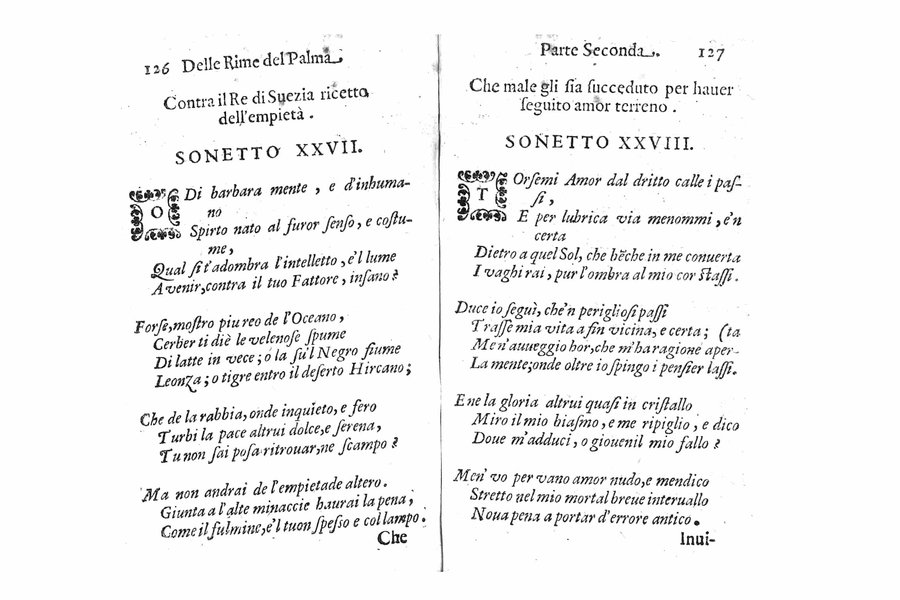 126 Delle Rime del Palma.
Contra il Re di Suezia ricetto
dell'empietà.
SONETTO XXVII.
O Di barbara mente, e d'inhuma-
no
Spirto nato al furor ſenſo, e coſtu-
me,
Qual ſi t'adombra l'intelletto, e'l lume
A venir, contra il tuo Fattore, inſano?
Forſe, moſtro piu reo de l'Oceano,
Cerber ti diè le velenoſe ſpume
Di latte in vece; o la ſu'l Negro fiume
Leonza; o tigre entro il deſerto Hircano;
Che de la rabbia, onde inquieto, e fero
Turbi la pace altrui dolce, e ſerena,
Tu non ſai poſa ritrouar, ne ſcampo?
Ma non andrai de l'empietade altero.
Giunta a l'alte minaccie haurai la pena,
Come il fulmine, e'l tuon ſpeſſo e col lampo.
Che
Parte Seconda. 127
Che male gli ſia ſucceduto per hauer
ſeguito amor terreno.
SONETTO XXVIII.
TOrſemi Amor dal dritto calle i paſ-
ſi,
E per lubrica via menommi, e'n
certa
Dietro a quel Sol, che bẽche in me conuerta
I vaghi rai, pur l'ombra al mio cor ſtaſſi.
Duce io ſeguì, che'n periglioſi paſſi
Traſſe mia vita a fin vicina, e certa; (ta
Me n'auueggio hor, che m'ha ragione aper-
La mente; onde oltre io ſpingo i penſier laſſi.
E ne la gloria altrui quaſi in criſtallo
Miro il mio biaſmo, e me ripiglio, e dico
Doue m'adduci, o giouenil mio fallo?
Men' vo per vano amor nudo, e mendico
Stretto nel mio mortal breue interuallo
Noua pena a portar d'errore antico.
Inui-